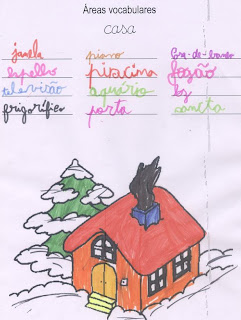 Áreas vocabulares
casa
janela piano fora-de-banho
espelho piscina fogão
televisão aquário
frigorífico porta caneta